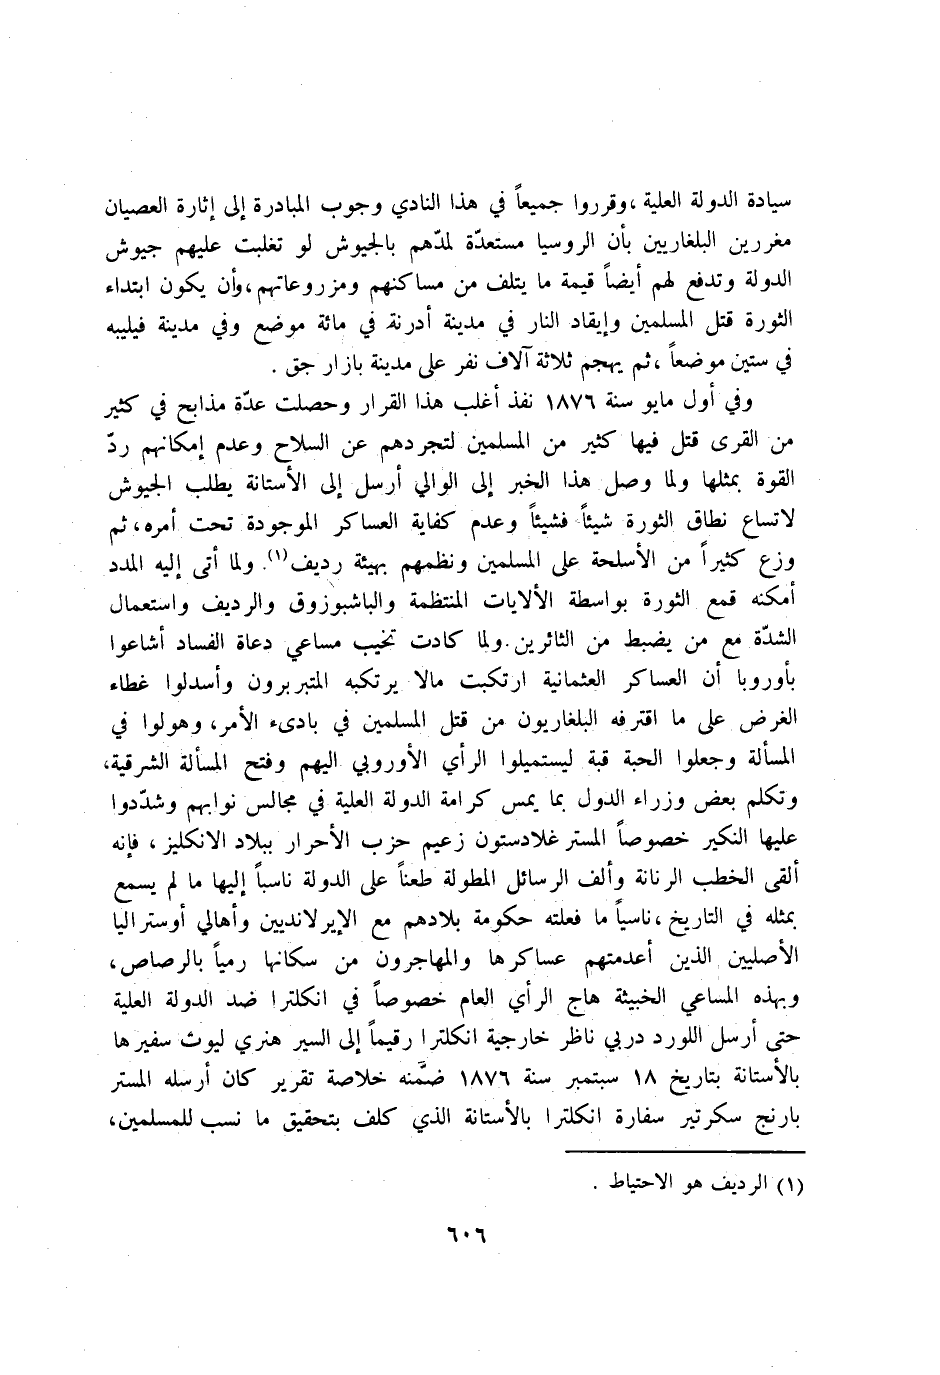 سيادة الدولة العلية ،وقرروا جميعاً في هذا النادي وجوب المبادرة إلى إثارة العصيان
مغررين البلغاريين بأن الروسيا مستعدّة لمدّهم بالجيوش لو تغلبت عليهم جيوش
الدولة وتدفع لهم أيضاً قيمة ما يتلف من مساكنهم ومزروعاتهم،وأن يكون ابتداء
الثورة قتل المسلمين وإيقاد النار في مدينة أدرنة في مائة موضع وفي مدينة فيليبه
في ستين موضعاً ،ثم يهجم ثلاثة آلاف نفر على مدينة بازار جق .
وفي أول مايو سنة ١٨٧٦ نفذ أغلب هذا القرار وحصلت عدّة مذابح في كثير
من القرى قتل فيها كثير من المسلمين لتجردهم عن السلاح وعدم إمكانهم ردّ
القوة بمثلها ولما وصل هذا الخبر إلى الوالي أرسل إلى الأستانة يطلب الجيوش
لاتساع نطاق الثورة شيئاً فشيئاً وعدم كفاية العساكر الموجودة تحت أمره، ثم
وزع كثيراً من الأسلحة على المسلمين ونظمهم بهيئة رديف(١). ولما أتى إليه المدد
أمكنه قمع الثورة بواسطة الألايات المنتظمة والباشبوزوق والرديف واستعمال
الشدّة مع من يضبط من الثائرين.ولما كادت تخيب مساعي دعاة الفساد أشاعوا
بأوروبا أن العساكر العثمانية ارتكبت مالا يرتكبه المتبربرون وأسدلوا غطاء
الغرض على ما اقترفه البلغاريون من قتل المسلمين في بادىء الأمر، وهولوا في
المسألة وجعلوا الحبة قبة ليستميلوا الرأي الأوروبي اليهم وفتح المسألة الشرقية،
وتكلم بعض وزراء الدول بما يمس كرامة الدولة العلية في مجالس نوابهم وشدّدوا
عليها النكير خصوصاً المستر غلادستون زعيم حزب الأحرار ببلاد الانكليز ، فإنه
ألقى الخطب الرنانة وألف الرسائل المطولة طعناً على الدولة ناسباً إليها ما لم يسمع
بمثله في التاريخ ،ناسياً ما فعلته حكومة بلادهم مع الإيرلانديين وأهالي أوستراليا
الأصليين الذين أعدمتهم عساكرها والمهاجرون من سكانها رمياً بالرصاص،
وبهذه المساعي الخبيثة هاج الرأي العام خصوصاً في انكلترا ضد الدولة العلية
حتى أرسل اللورد دربي ناظر خارجية انكلترا رقيماً إلى السير هنري ليوث سفيرها
بالأستانة بتاريخ ١٨ سبتمبر سنة ١٨٧٦ ضمَّنه خلاصة تقرير كان أرسله المستر
بارنج سكرتير سفارة انكلترا بالأستانة الذي كلف بتحقيق ما نسب للمسلمين،
(١) الرديف هو الاحتياط .
٦٠٦